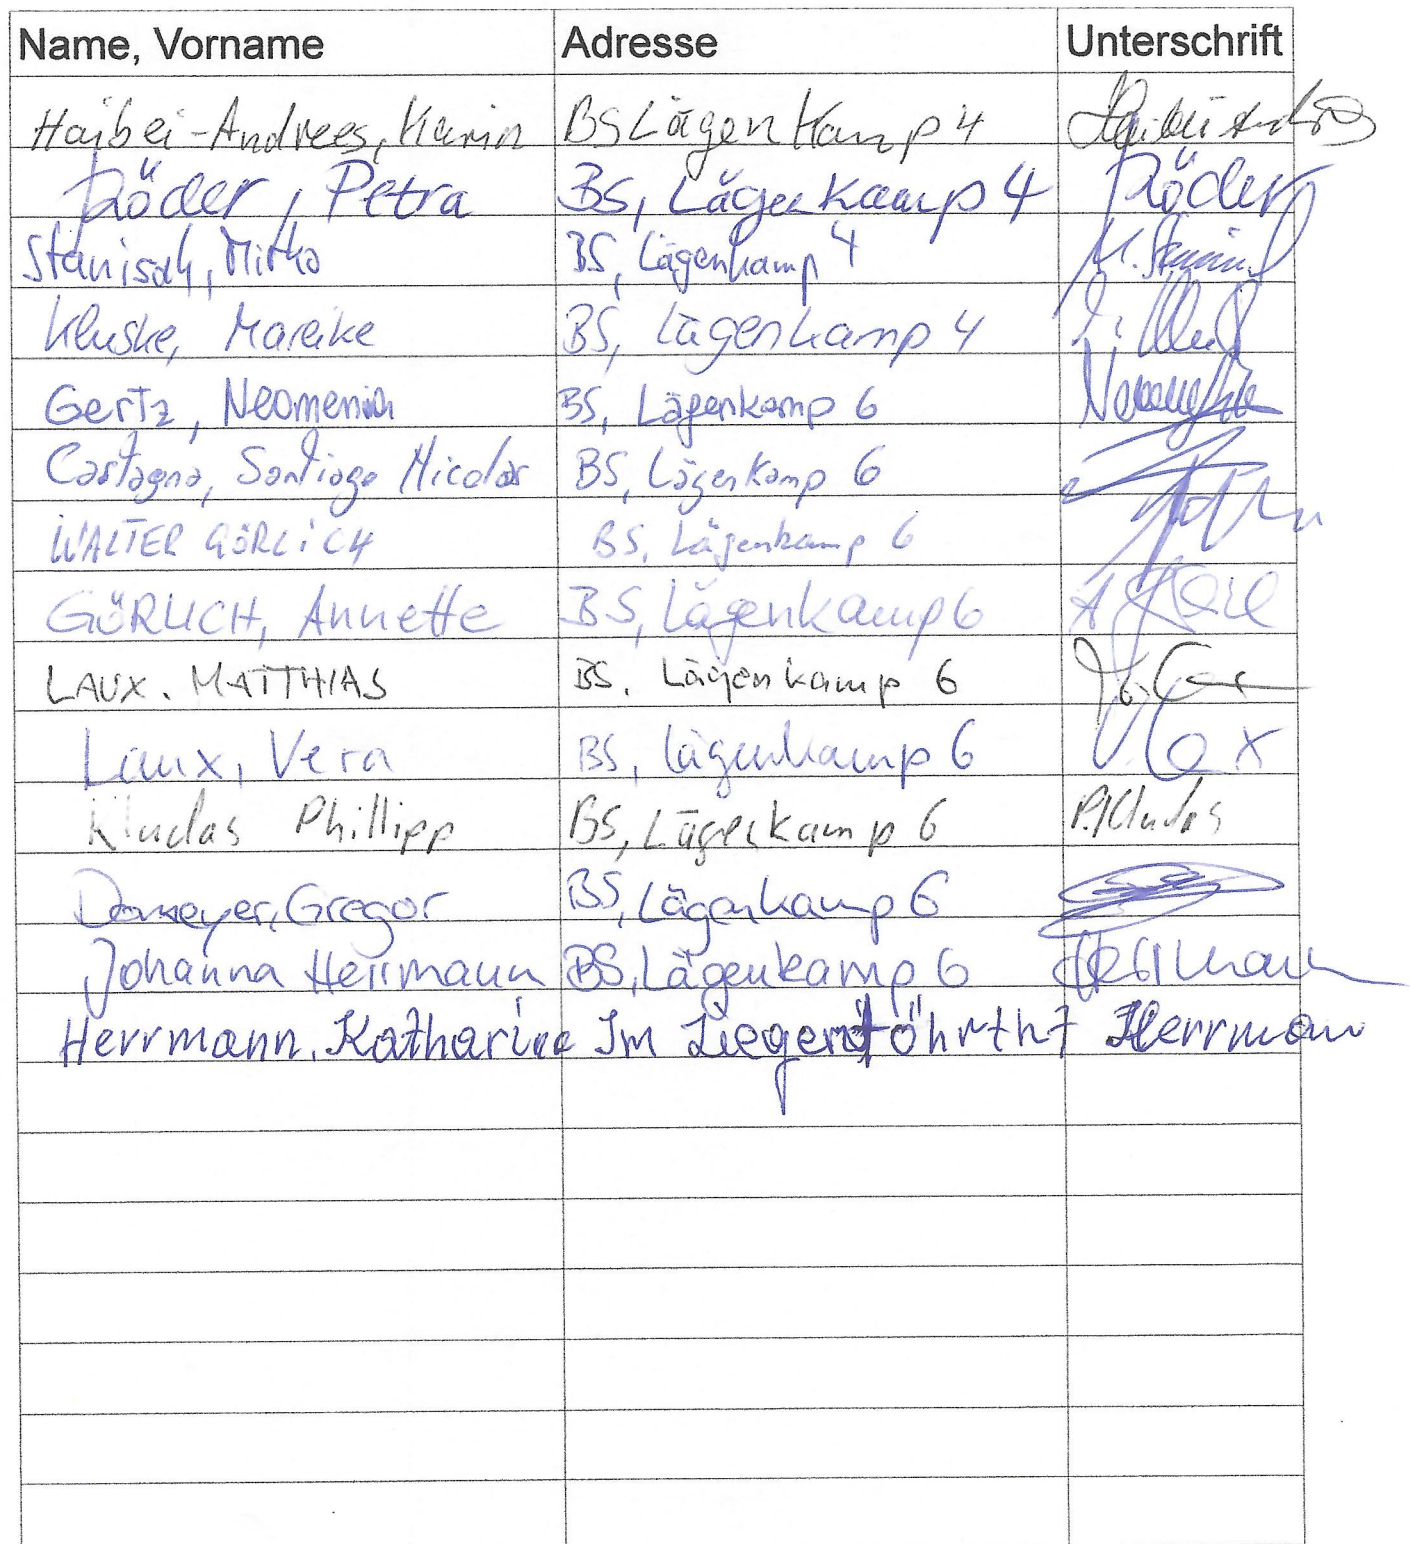 Name, Vorname Adresse Unterschrift
Haibei-Andrees, Karin BS Lägenkamp 4
Röder, Petra BS, Lägenkamp 4 Röder
Mirko BS, Lägenkamp 4
Kluske, Mareike BS, Lägenkamp 4
Gertz, Neomenia BS, Lägenkamp 6
Castagna, Santiago Nicolas BS, Lägenkamp 6
WALTER GÖRLICH BS, Lägenkamp 6
GÖRLICH, Annette BS, Lägenkamp 6
LAUX. MATTHIAS BS. Lägenkamp 6
Laux, Vera BS, Lägenkamp 6
Kludas Phillipp BS, Lägenkamp 6 P. Kludas
Domeyer, Gregor BS, Lägenkamp 6
Johanna Herrmann BS, Lägenkamp 6 Herrmann
Herrmann, Katharina Im Herrmann